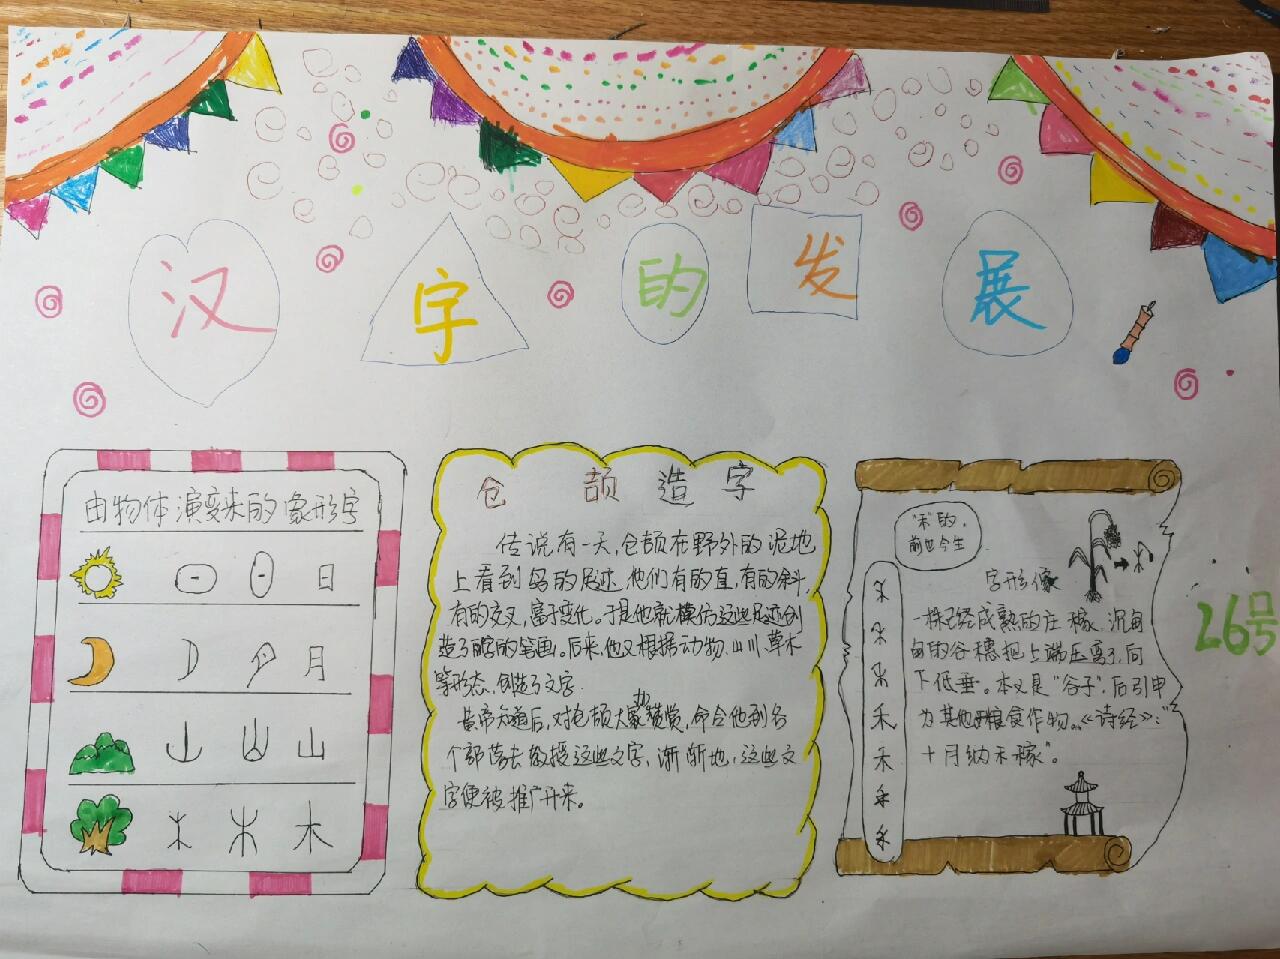 汉字的发展
由物体演变来的象形字
日
月
山
木
仓颉造字
传说有一天,仓颉在野外的泥地
上看到鸟的足迹,他们有的直,有的斜,
有的交叉,富于变化。于是他就模仿这些足迹创
造了的笔画。后来,他又根据动物、山川、草木
等形态,创造了文字.
黄帝知道后,对仓颉大加赞赏,命令他到各
个部落去教授这些文字,渐渐地,这些文
字便被推广开来。
"禾"的,
前世今生
字形像
一株已经成熟的庄稼,沉甸
甸的谷穗把上端压弯了,向
下低垂。本义是"谷子",后引申
为其他粮食作物。《诗经》:"
十月纳禾稼"。
禾
禾
26号